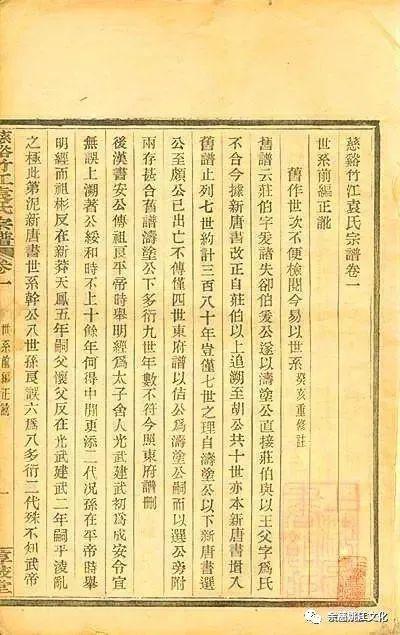 慈谿竹江袁氏宗譜卷一
世系前編正訛
舊作世次不便檢閱今易以世系癸亥重修註
舊譜云莊伯字爰諸失卻伯爰公遂以濤塗公直接莊伯與以王父字爲氏
不合今據新唐書改正自莊伯以上追溯至胡公共十世亦本新唐書填入
舊譜止列七世約計三百八十年豈僅七世之理自濤塗公以下新唐書選
公至頗公已出亡不傳僅四世東府譜以佶公爲濤塗公嗣而以選公旁附
兩存甚合舊譜濤塗公下多衍九世年數不符今照東府譜刪
後漢書安公傳祖良平帝時舉明經爲太子舍人光武建武初爲成安令宜
無誤上溯著公綏和時不上十餘年何得中間更添二代況孫在平帝時舉
明經而祖彬反在新莽天鳳五年嗣父懷父反在光武建武二年嗣平陵亂
之極此第泥新唐書世系幹公八世孫良誤六爲八多衍二代殊不知武帝
慈谿竹江袁氏宗譜
卷一
世系前編正訛
一
余慈姚鈺文化